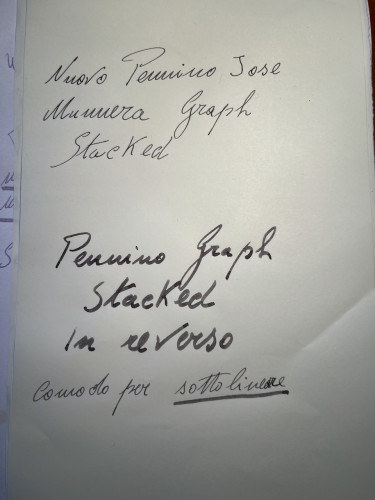 Nuovo Pennino Jose
Munnera Graph
Stacked
Pennino Graph
Stacked
In reverso
comodo per sottolineare